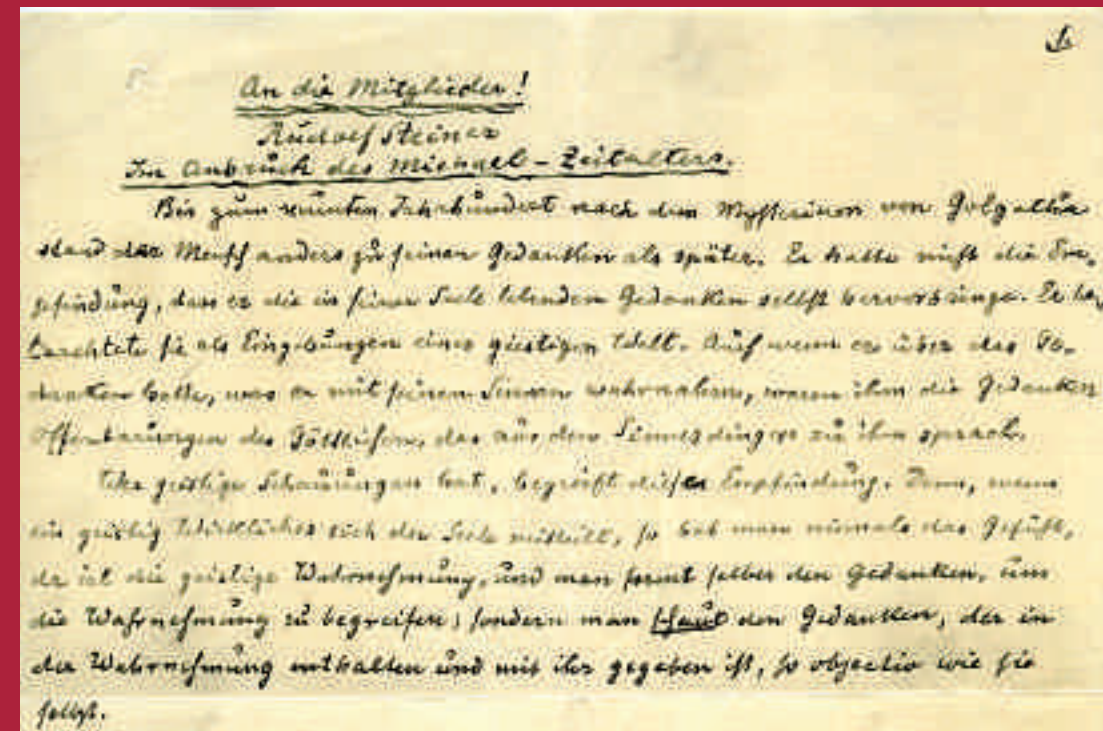 1.
An die Mitglieder!
Rudolf Steiner
Im Anbruch des Michael-Zeitalters.
Bis zum neunten Jahrhundert nach dem Mysterium von Golgatha
stand der Mensch anders zu seinen Gedanken als später. Er hatte nicht die Em-
pfindung, dass er die in seiner Seele lebenden Gedanken selbst hervorbringe. Er be-
trachtete sie als Eingebungen einer geistigen Welt. Auch wenn er über das Ge-
danken hatte, was er mit seinen Sinnen wahrnahm, waren ihm die Gedanken
Offenbarungen des Göttlichen, das aus den Sinnesdingen zu ihm sprach.
Wer geistige Schauungen hat, begreift diese Empfindung. Denn, wenn
ein geistig Wirkliches sich der Seele mitteilt, so hat man niemals das Gefühl,
da ist die geistige Wahrnehmung, und man formt selber den Gedanken, um
die Wahrnehmung zu begreifen; sondern man schaut den Gedanken, der in
der Wahrnehmung enthalten und mit ihr gegeben ist, so objectiv wie sie
selbst.